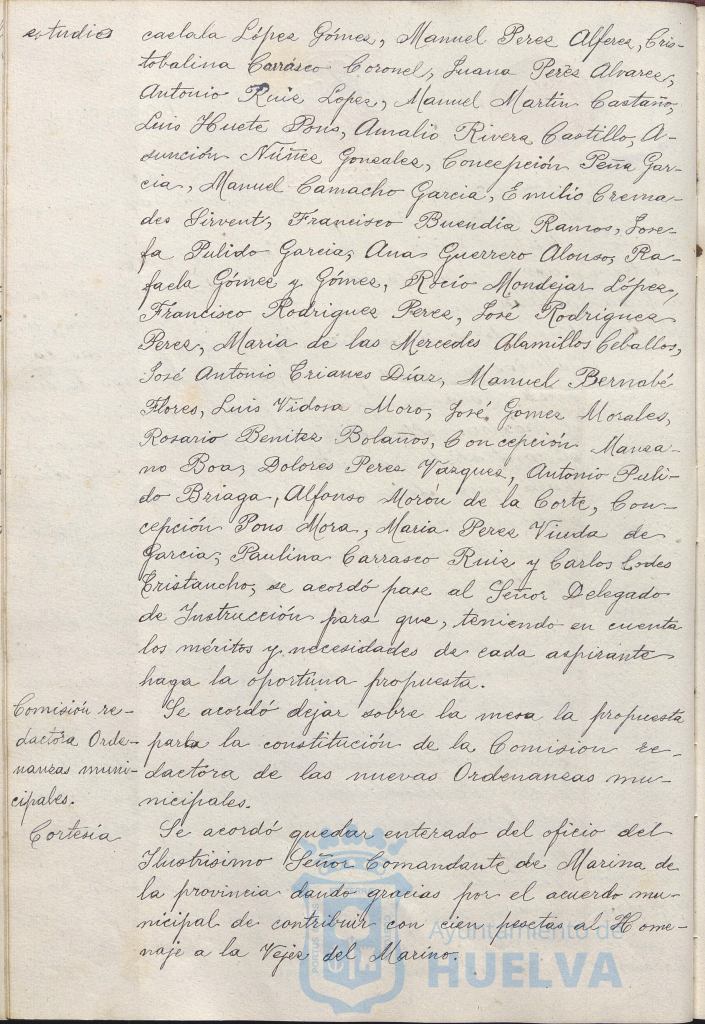 estudios
caelala López Gómez, Manuel Perez Alferez, Cris-
tobalina Carrasco Coronel, Juana Peréz Alvarez,
Antonio Ruiz Lopez, Manuel Martin Castaño,
Luis Huete Pons, Amalio Rivera Castillo, A-
sunción Núñez Gonzalez, Concepción Peña Gar-
cia, Manuel Camacho Garcia, Emilio Crema-
des Sirvent, Francisco Buendía Ramos, Jose-
fa Pulido Garcia, Ana Guerrero Alonso, Ra-
faela Gómez y Gómez, Rocío Mondejar López,
Francisco Rodriguez Perez, José Rodriguez
Perez, Maria de las Mercedes Alamillos Ceballos,
José Antonio Trianes Díaz, Manuel Bernabé
Flores, Luis Vidosa Moro, José Gomez Morales,
Rosario Benitez Bolaños, Concepción Manza-
no Boa, Dolores Perez Vázquez, Antonio Puli-
do Briaga, Alfonso Morón de la Corte, Con-
cepción Pons Mora, Maria Perez Viuda de
Garcia, Paulina Carrasco Ruiz y Carlos Lodes
Cristancho, se acordó pase al Señor Delegado
de Instrucción para que, teniendo en cuenta
los méritos y necesidades de cada aspirante
haga la oportuna propuesta.
Comisión re-
dactora Orde-
nanzas muni-
cipales.
Se acordó dejar sobre la mesa la propuesta
para la constitución de la Comision re-
dactora de las nuevas Ordenanzas mu-
nicipales.
Cortesía
Se acordó quedar enterado del oficio del
Ilustrisimo Señor Comandante de Marina de
la provincia dando gracias por el acuerdo mu-
nicipal de contribuir con cien pesetas al Home-
naje a la Vejez del Marino.
Ayuntamiento de
HUELVA